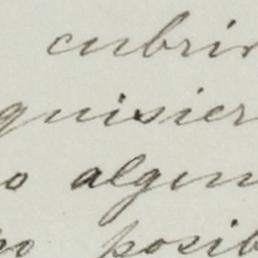 cubrir
quisier
o algun
no posib